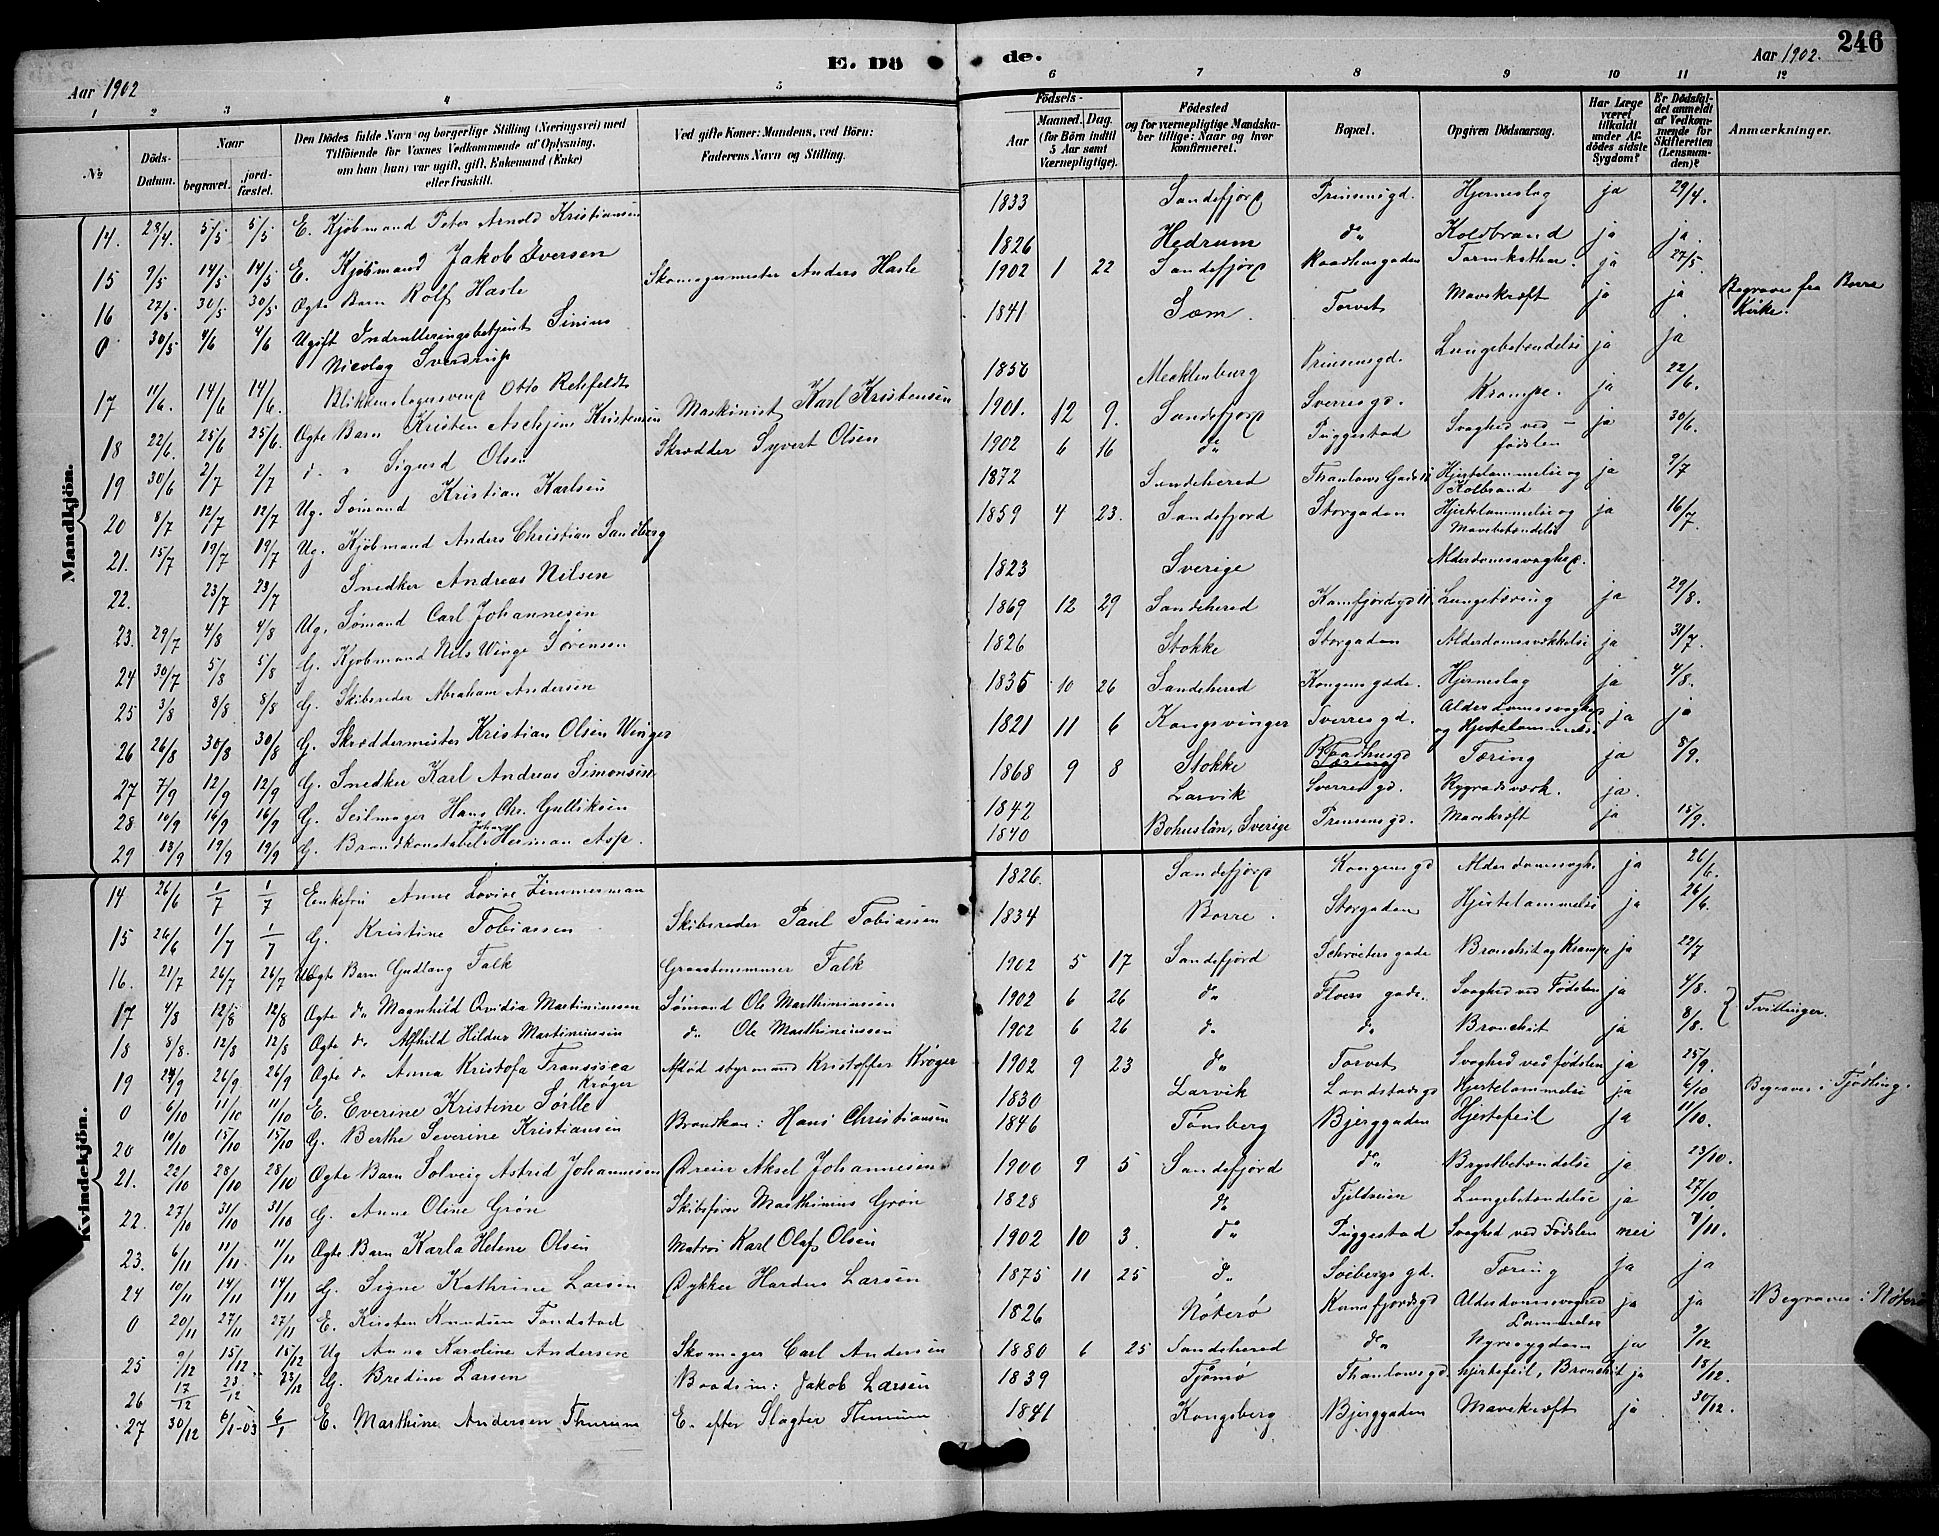 E. Dö
de.
246
Aar 1902
Aar 1902.
1 2 3 4 5 6 7 8 9 10 11 12
№
Döds-Datum.
Naar
begravet.
jord-fæstet.
Den Dödes fulde Navn og borgerlige Stilling (Næringsvei) med
Tilföiende for Voxnes Vedkommende af Oplysning,
om han (hun) var ugift, gift, Enkemand (Enke)
eller fraskilt.
Ved gifte Koner: Mandens, ved Börn:
Faderens Navn og Stilling.
Födsels-
Aar
Maaned. Dag.
(for Börn indtil
5 Aar samt
Værnepligtige).
Födested
og for værnepligtige Mandska-
ber tillige: Naar og hvor
konfirmeret.
Bopæl.
Opgiven Dödsaarsag.
Har Læge
været
tilkaldt
under Af-
dödes sidste
Sygdom?
Er Dödsfal-
det anmeldt
af Vedkom-
mende for
Skifteretten
(Lensman-
den)?
Anmærkninger.
Mandkjön.
14. 28/4. 5/5 5/5 E. Kjöbmand Peter Arnold Kristiansen 1833 Sandefjord Prinsensgd. Hjerneslag ja 29/4.
15 9/5 14/5 14/5 E. Kjöbmand Jakob Iversen 1826 Hedrum do Koldbrand ja ja.
16 27/5 30/5 30/5. Ægte Barn Rolf Hasle Skomagermester Anders Hasle 1902 1 22 Sandefjord Raadhusgaden Tarmkathar. ja 27/5.
0 30/5 4/6 4/6 Ugift Indrulleringsbetjent Sinius
Nicolay Sverdrup 1841 Sem. Torvet Mavekræft ja ja Begraves fra Borre
Kirke.
17 11/6. 14/6 14/6. Blikkenslagersvend Otto Rehfeldt 1850 Mecklenburg Prinsensgd. Lungebetændelse ja ja
18 22/6. 25/6 25/6. Ægte Barn Kristen Aschjem Kristensen Maskinist Karl Kristensen 1901. 12 9. Sandefjord Sverresgd. Krampe. ja 22/6.
19 30/6 2/7 2/7 d. " Sigurd Olsen Skrædder Syvert Olsen 1902 6 16 do Puggestad Svaghed ved -
fødslen ja 30/6.
20 8/7 12/7 12/7 Ug. Sømand Kristian Karlsen 1872 Sandeherred Thaulows Gade Hjertelammelse og
Kolbrand ja 9/7
21. 15/7 19/7 19/7 Ug. Kjöbmand Anders Christian Sandberg 1859 4 23. Sandefjord Storgaden Hjertelammelse og
Mavebetændelse ja 16/7.
22. 23/7 23/7 Snedker Andreas Nilsen 1823 Sverige Alderdomssvaghed.
23. 29/7 4/8 4/8 Ug. Sømand Carl Johannesen 1869 12 29 Sandeherred Kamfjordgd Lungetæring ja 29/8.
24 30/7 5/8 5/8 G. Kjöbmand Nils Winge Sørensen 1826 Stokke Storgaden Alderdomssvækkelse ja 31/7.
25 3/8 8/8 8/8 G. Skibsreder Abraham Andersen 1835 10 26 Sandeherred Kongensgade. Hjerneslag ja 4/8.
26 26/8 30/8 30/8 G. Skræddermester Kristian Olsen Winger 1821 11 6 Kongsvinger Sverresgd. Alderdomssvaghed
og Hjertelammelse ja ja
27 7/9 12/9 12/9 G. Snedker Karl Andreas Simonsen 1868 9 8 Stokke Raadhusgd Tæring ja 8/9.
28 10/9 16/9 16/9 G. Seilmager Hans Chr. Gulliksen 1842 Larvik Sverresgd. Rygradsværk. ja.
29 13/9 19/9 19/9 G. Brandkonstabel Johan Herman Asp. 1840 Bohuslän, Sverige Prinsensgd. Mavekræft ja 15/9.
Kvindekjön.
14 26/6 1/7 1/7 Enkefru Anne Lovise Zimmerman 1826. Sandefjord Kongensgd Alderdomssvagh. ja 26/6.
15 26/6 1/7 1/7 G. Kristine Tobiassen Skibsreder Paul Tobiassen 1834 Borre. Storgaden Hjertelammelse ja 26/6.
16. 21/7 26/7 26/7 Uægte Barn Gudlaug Falk Graastensmurer Falk 1902 5 17 Sandefjord Schrøtersgade Bronchit og Krampe ja 22/7
17 4/8 12/8 12/8 Ægte do Magnhild Ovidia Martiniussen Sømand Ole Marthiniussen 1902 6 26 do Flors gade. Svaghed ved Fødslen ja 4/8. Tvillinger.
18 8/8. 12/8 12/8 Ægte do Alfhild Hildur Martiniussen do Ole Marthiniussen 1902 6 26 do do Bronchit ja 8/8.
19 24/9 26/9 26/9 Ægte do Anna Kristofa Fransisca
Krøger Afdød styrmand Kristoffer Krøger 1902 9 23 do Torvet Svaghed ved fødslen ja 25/9.
0 6/10 11/10 11/10 E. Everine Kristine Sørlle 1830 Larvik Landstadsgd Hjertelammelse ja 6/10 Begraves i Tjødling.
20 10/10 15/10 15/10 G. Berthe Severine Kristiansen Brandkon: Hans Christiansen 1846 Tønsberg Bjerggaden Hjertefeil ja 11/10.
21. 22/10 28/10 28/10 Ægte Barn Solveig Astrid Johannesen Dreier Aksel Johannesen 1900 9 5 Sandefjord do Brystbetændelse ja 23/10.
22. 27/10 31/10 31/10 G. Anne Oline Grøn Skibsfører Marthinius Grøn 1828 do Fjeldveien Lungebetændelse ja 27/10
23. 6/11 11/11. 11/11 Ægte Barn Karla Helene Olsen Matros Karl Olaf Olsen 1902 10 3. do Puggestad Svaghed ved Fødslen nei 7/11.
24 10/11 14/11 14/11 G. Signe Kathrine Larsen Dykker Hardus Larsen 1875 11 25 do Soebergsgd. Tæring ja ja
0 20/11 27/11 27/11 E. Kirsten Knudsen Tandstad 1826 Nøterø Kamfjordsgd Alderdomssvaghed
Lammelse ja ja Begraves i Nøterø
25 9/12 15/12 15/12 Ug Anna Karoline Andersen Skomager Carl Andersen 1880 6 25 Sandeherred do Nyresygdom ja 9/12
26 17/12 23/12 23/12 G. Bredine Larsen Baadsm: Jakob Larsen 1839 Tjømø Thaulowsgd. hjertefeil, Bronchit ja 18/12.
27 30/12 6/1-03 6/1 E. Marthine Andersen Thurum E. efter Slagter Thurum 1841 Kongsberg Bjerggaden Mavekræft ja 30/12.